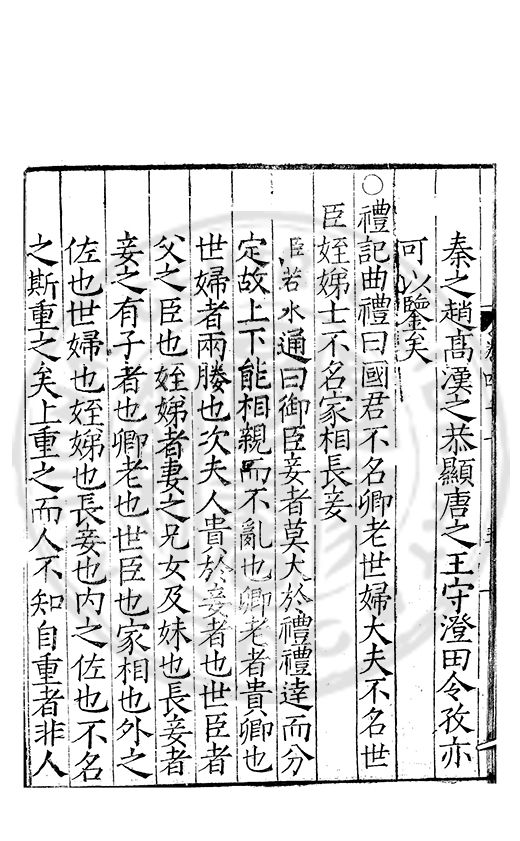 秦之趙高漢之恭顯唐之王守澄田令孜亦
可以鑒矣
○禮記曲禮曰國君不名卿老世婦大夫不名世
臣姪娣士不名家相長妾
臣若水通曰御臣妾者莫大於禮禮達而分
定故上下能相親而不亂也卿老者貴卿也
世婦者兩媵也次夫人貴於妾者也世臣者
父之臣也姪娣者妻之兄女及妹也長妾者
妾之有子者也卿老也世臣也家相也外之
佐也世婦也姪娣也長妾也内之佐也不名
之斯重之矣上重之而人不知自重者非人